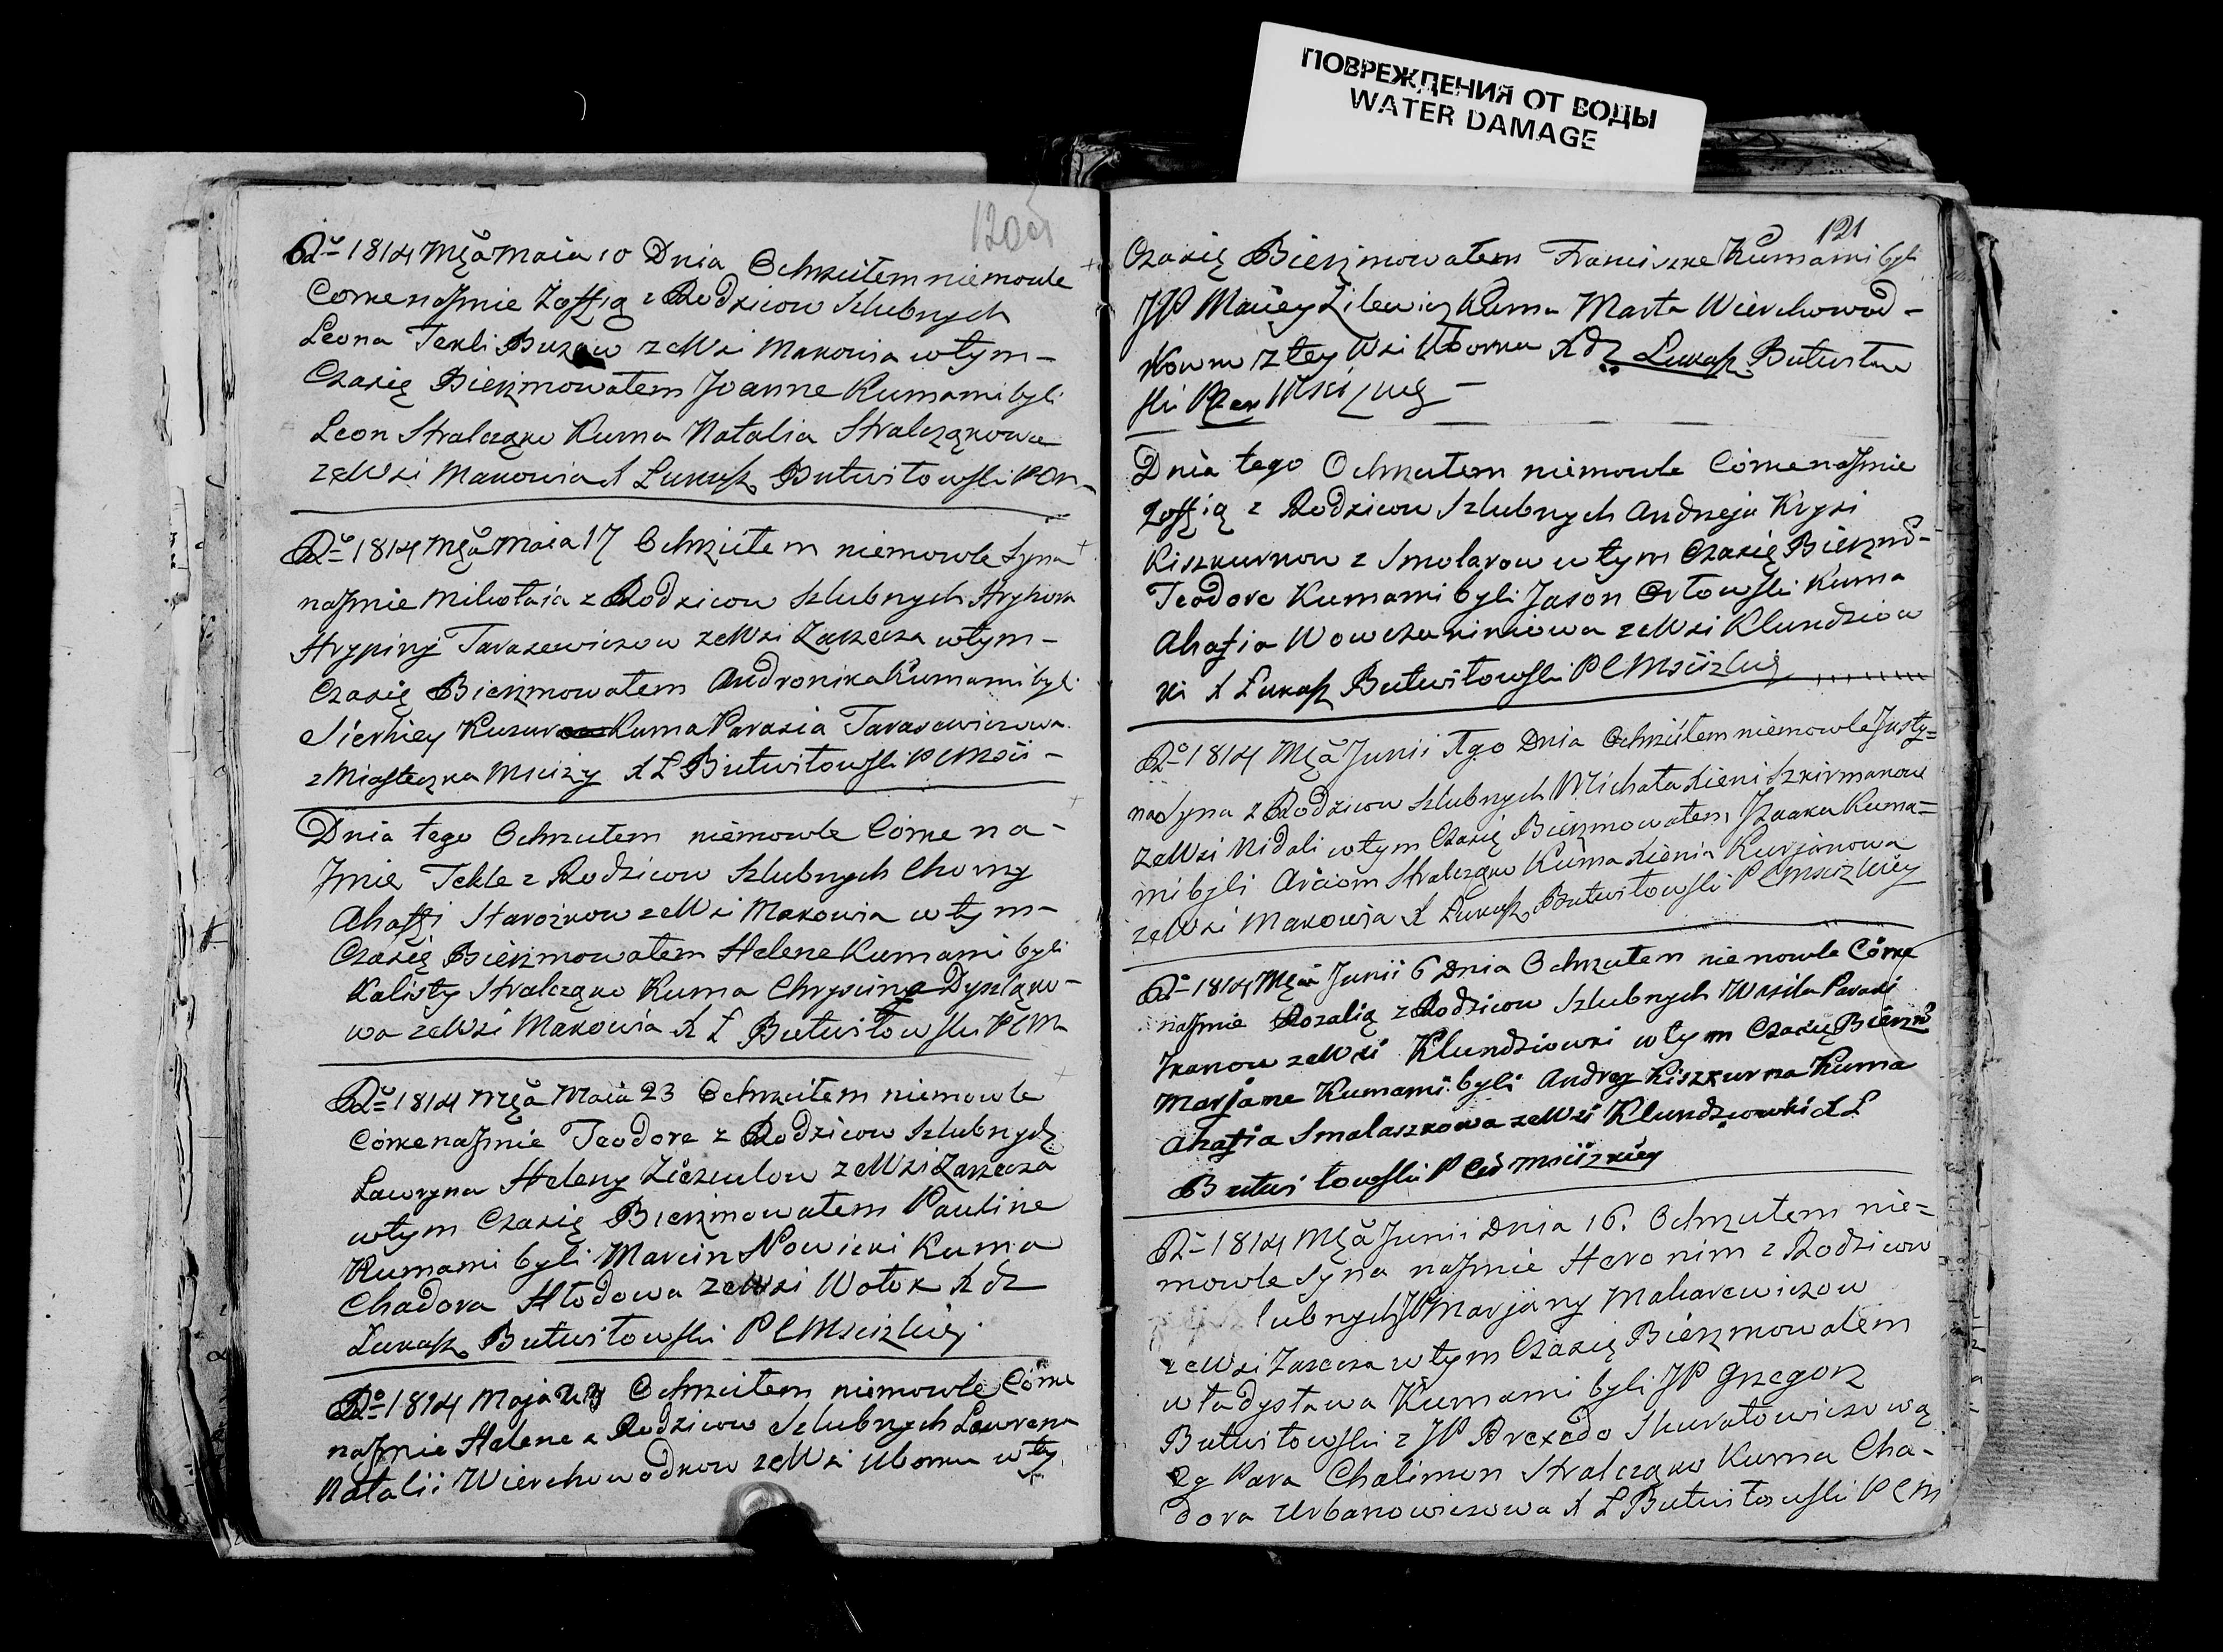 ПОВРЕЖДЕНИЯ ОТ ВОДЫ
WATER DAMAGE
120об
Ro 1814 Mca Maia 10 Dnia Ochrzciłem niemowle
Corke na Jmie Zoffią z Rodzicow Szlubnych
Leona Tekli ze Wsi Makowia w tym-
Czasię Bierzmowałem Joanne Kumami byli
Leon Stralcząko Kuma Natalia Stralcząkowa
ze Wsi Makowia X Łukasz Butwiłowski
Ro 1814 Mca Maia 17 Ochrzciłem niemowle Syna
na Jmie Mikołaia z Rodzicow Szlubnych Hryhora
Hrypiny Tarasewiczow ze Wsi Zarzecza w tym-
Czasię Bierzmowałem Andronika Kumami byli
Sierhiey Kuma Parasia Tarasewiczowa
z Miasteczka Mscizy X Ł Butwiłowski P C Mści-
Dnia tego Ochrzciłem niemowle Corke na-
Jmie Tekle z Rodzicow Szlubnych Chomy
Ahafji Starożkow ze Wsi Makowia w tym-
Czasię Bierzmowałem Helene Kumami byli
Kalisty Stralcząko Kuma Chrysciną
wa ze Wsi Makowia X Ł Butwiłowski P C M
Ro 1814 Mca Maia 23 Ochrzciłem niemowle
Corke na Jmie Teodore z Rodzicow Szlubnych
Ławryna Heleny ze Wsi Zarzecza
w tym Czasię Bierzmowałem Pauline
Kumami byli Marcin Nowicki Kuma
Chadora Hłodowa ze Wsi Wołok X dz
Łukasz Butwiłowski P C Mscizkiej
Ro 1814 Maja Ochrzciłem niemowle Corke
na Jmie Helene z Rodzicow Szlubnych Ławrena
Natalii Wierchowodkow ze Wsi Uborku w tÿ
121
Czasię Bierzmowałem Franciszke Kumami byli
JP Maciey Zilewicz Kuma Marta Wierchowod-
kowna z tey Wsi Uborku X dz Łukasz Butwiłow
ski
Dnia tego Ochrzciłem niemowle Corke na Jmie
Zoffią z Rodzicow Szlubnych Andrzeja Krysi
Kiszkurnow z Smolarow w tym Czasię Bierzmo-
Teodore Kumami byli Jason Orłowski Kuma
Ahafia ze Wsi Klundziow
ki X Łukasz Butwiłowski P C Mścizkiej
Ro 1814 Mca Junii 1go Dnia Ochrzciłem niemowle Justy=
na Syna z Rodzicow Szlubnych Michała Xieni Szkirmanow
ze Wsi Nidali w tym Czasię Bierzmowałem Jzaaka Kuma=
mi byli Arciom Stralcząko Kuma Xienia Kurjanowa
ze Wsi Makowia X Łukasz Butwiłowski P C Mscizkiey
Ro 1814 Mca Junii 6 Dnia Ochrzciłem niemowle Corke
na Jmie Rozalią z Rodzicow Szlubnych Wasila Parasi
ze Wsi Klundziowki w tym Czasię Bierzmo
Marjane Kumami byli Andrey Kiszkurna Kuma
Ahafia Smalaszkowa ze Wsi Klundziowki X Ł
Butwiłowski P C Mścizkiey
Ro 1814 Mca Junii Dnia 16. Ochrzciłem nie=
mowle Syna na Jmie Heronim z Rodzicow
lubnych JP Marjany Makarewiczow
ze Wsi Zarzecza w tym Czasię Bierzmowałem
władysława Kumami byli JP Grzegorz
Butwiłowski z JP Prexedo Skuratowiczową
2g Para Chalimon Stralcząko Kuma Cha-
dora Urbanowiczowa X Ł Butwiłowski P C M